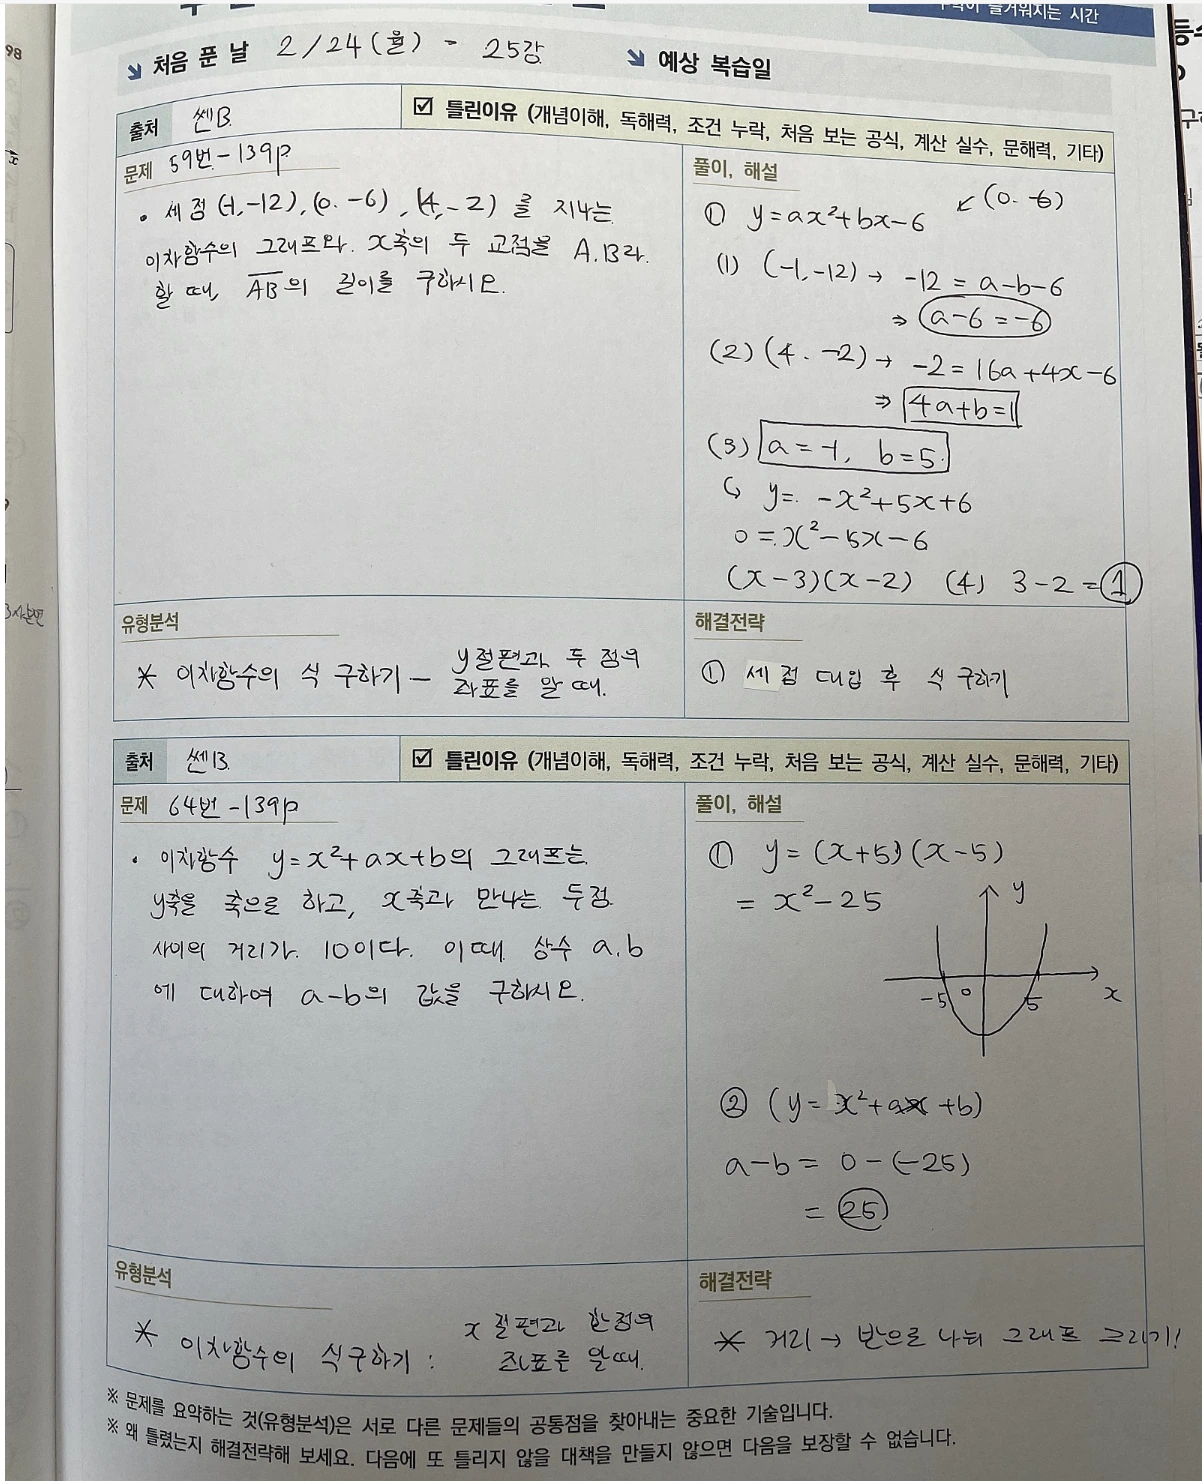 수학이 즐거워지는 시간
처음 푼 날 2/24(월) - 25강
예상 복습일
출처 쎈B
☑ 틀린이유 (개념이해, 독해력, 조건 누락, 처음 보는 공식, 계산 실수, 문해력, 기타)
문제 59번-139p
• 세 점 (-1,-12),(0.-6),(4,-2)를 지나는
이차함수의 그래프와. x축의 두 교점을 A.B라.
할 때, AB의 길이를 구하시오.
풀이, 해설
① y=ax²+bx-6 ↙(0.-6)
(1) (-1,-12)→ -12=a-b-6
⇒ a-6=-6
(2) (4.-2)→ -2=16a+4x-6
⇒ 4a+b=1
(3) a=-1, b=5.
↳ y=. -x²+5x+6
0=x²-5x-6
(x-3)(x-2) (4) 3-2=①
유형분석
* 이차함수의 식 구하기 - y절편과 두 점의
좌표를 알 때.
해결전략
① 세 점 대입 후 식 구하기
출처 쎈B.
☑ 틀린이유 (개념이해, 독해력, 조건 누락, 처음 보는 공식, 계산 실수, 문해력, 기타)
문제 64번-139p
• 이차함수 y=x²+ax+b의 그래프는
y축을 축으로 하고, x축과 만나는 두점
사이의 거리가. 10이다. 이때 상수 a.b
에 대하여 a-b의 값을 구하시오.
풀이, 해설
① y=(x+5)(x-5)
= x²-25
y
-5 0 5 x
② (y=x²+ax+b)
a-b= 0-(-25)
= 25
유형분석
* 이차함수의 식구하기 : x절편과 한점의
좌표를 알때.
해결전략
* 거리→반으로 나눠 그래프 그리기!
※ 문제를 요약하는 것(유형분석)은 서로 다른 문제들의 공통점을 찾아내는 중요한 기술입니다.
※ 왜 틀렸는지 해결전략해 보세요. 다음에 또 틀리지 않을 대책을 만들지 않으면 다음을 보장할 수 없습니다.
98